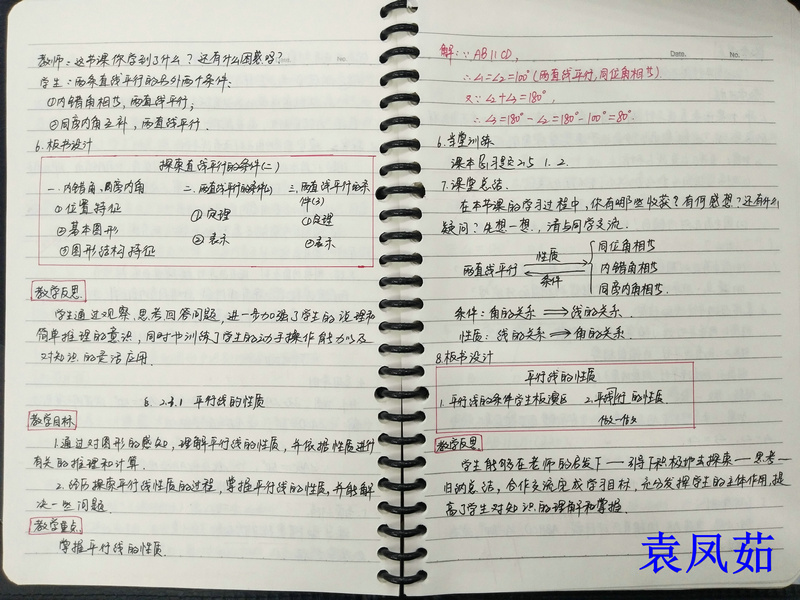 教师:这节课你学到了什么?还有什么困惑吗?
学生:两条直线平行的另外两个条件:
①内错角相等,两直线平行;
②同旁内角互补,两直线平行.
6.板书设计
探索直线平行的条件(二)
一.内错角、同旁内角
①位置特征
②基本图形
③图形结构特征
二.两直线平行的条件(2)
①定理
②表示
三.两直线平行的条件(3)
①定理
②表示
教学反思
学生通过观察、思考回答问题,进一步加强了学生的说理和
简单推理的意识,同时也训练了学生的动手操作能力以及
对知识的灵活应用.
8. 2.3.1 平行线的性质
教学目标
1.通过对图形的感知,理解平行线的性质,并依据性质进行
有关的推理和计算.
2.经历探索平行线性质的过程,掌握平行线的性质,并能解
决一些问题.
教学重点
掌握平行线的性质.
Date. No.
解:∵AB∥CD,
∴∠1=∠2=100°(两直线平行,同位角相等).
又∵∠2+∠3=180°,
∴∠3=180°-∠2=180°-100°=80°.
6.当堂训练
课本习题2.5 1.2.
7.课堂总结.
在本节课的学习过程中,你有哪些收获?有何感想?还有什么
疑问?先想一想,请与同学交流.
两直线平行 性质 条件
同位角相等
内错角相等
同旁内角相等.
条件:角的关系⟹线的关系.
性质:线的关系⟹角的关系.
8.板书设计
平行线的性质
1.平行线的条件学生板演区 2.平行线的性质
做一做
教学反思
学生能够在老师的启发下——引导下积极地去探索——思考—
归纳总结,合作交流完成学习目标,充分发挥学生的主体作用,提
高了学生对知识的理解和掌握.
袁凤茹